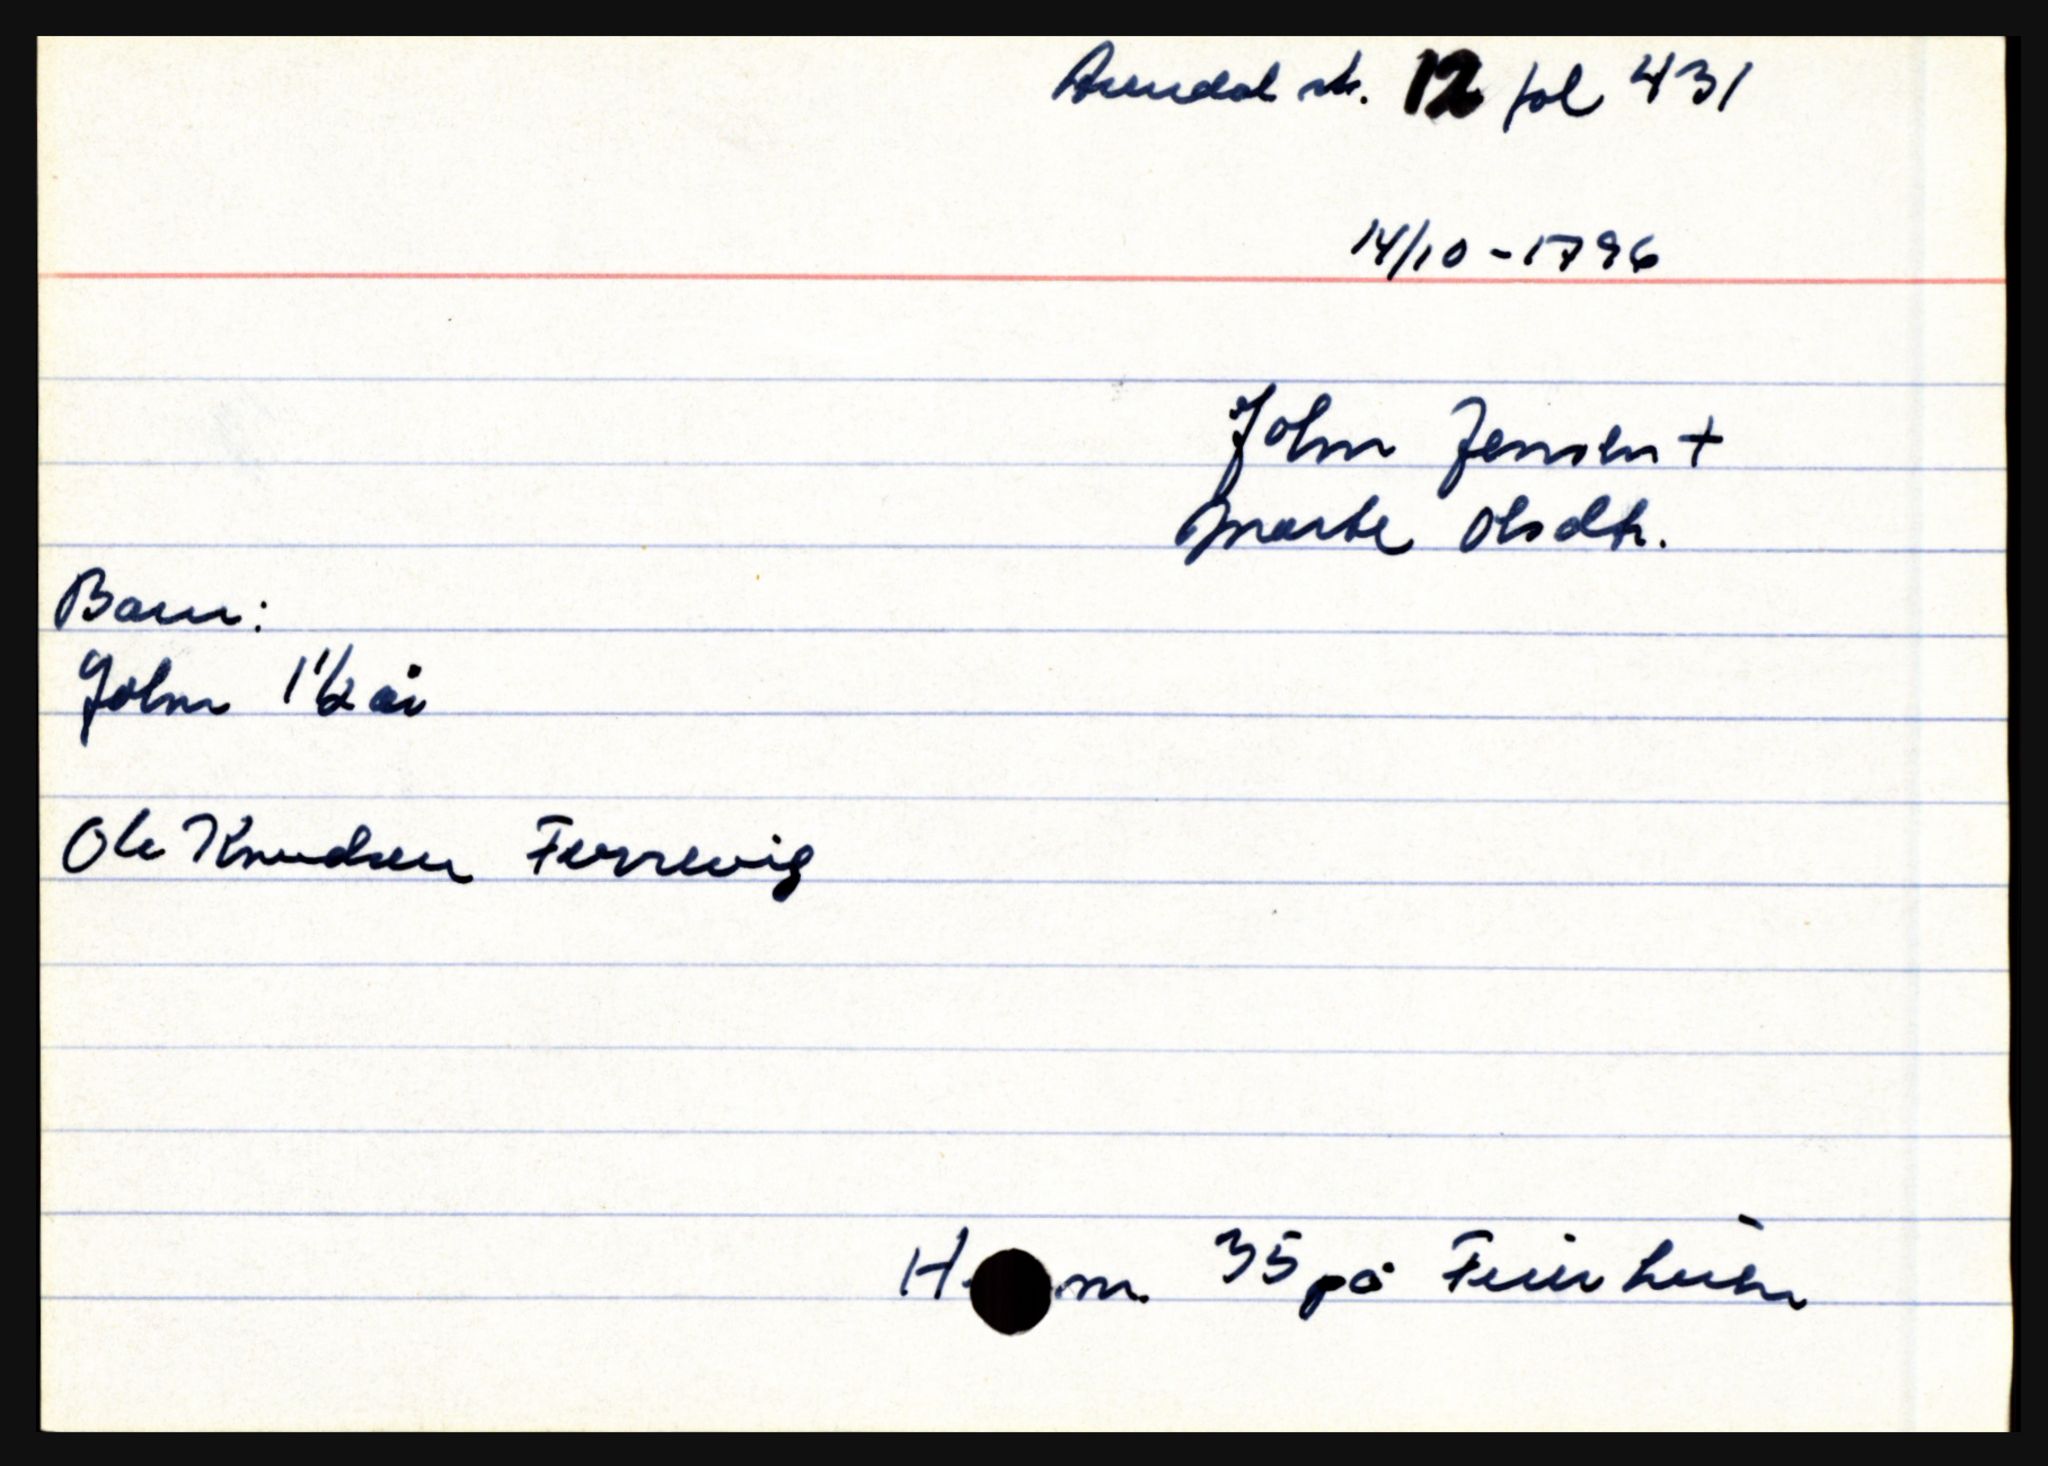 Arendal sk. 12 fol 431
14/10-1796
John Jensen +
Marte Olsdtr.
Barn:
John 1 1/2 år
Ole Knudsen Ferrevig
H m. 35 på